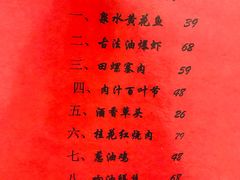 一、泉水黄花鱼 39
二、古法油爆虾 68
三、田螺塞肉 59
四、肉汁百叶节 48
五、酒香草头 26
六、桂花红烧肉 79
七、葱油鸡 48
八、油 68